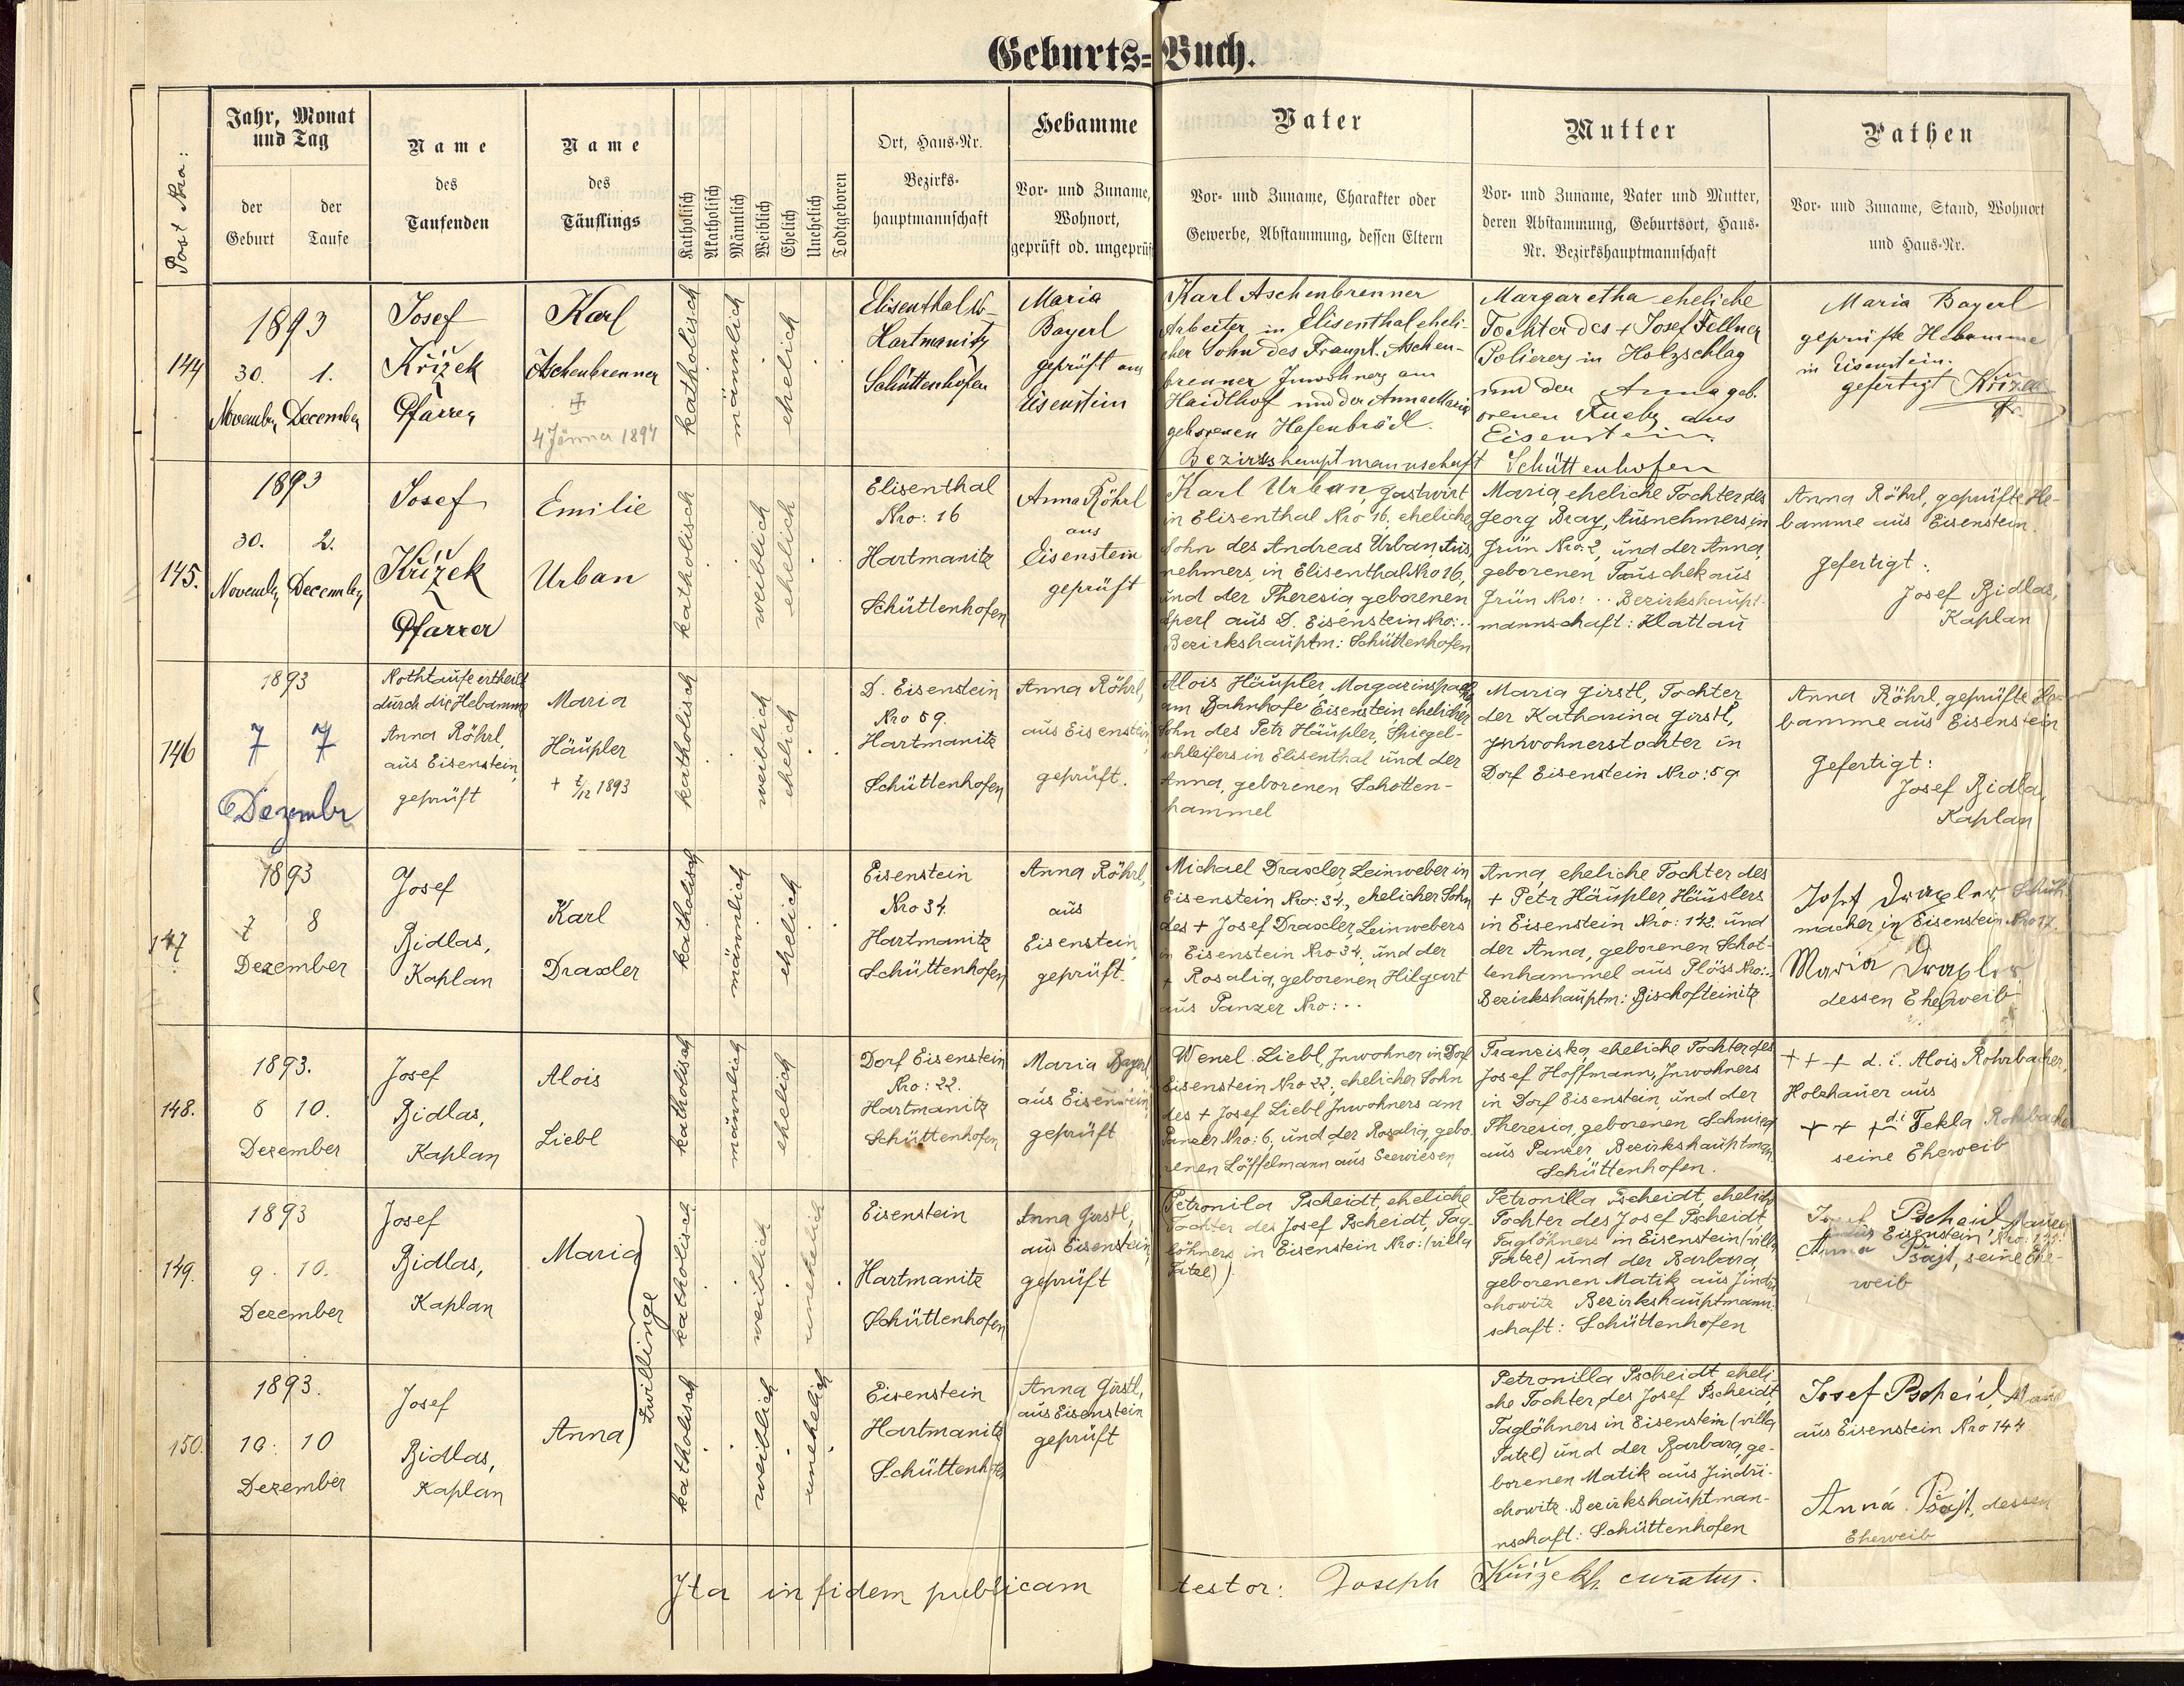 Geburts-Buch.
Post Nro:
Jahr, Monat
und Tag
der Geburt
der Taufe
Name
des
Taufenden
Name
des
Täuflings
Katholisch
Akatholisch
Männlich
Weiblich
Ehelich
Unehelich
Todtgeboren
Ort, Haus-Nr.
Bezirks-
hauptmannschaft
Hebamme
Vor- und Zuname,
Wohnort,
geprüft od. ungeprüft
Vater
Vor- und Zuname, Charakter oder
Gewerbe, Abstammung, dessen Eltern
Mutter
Vor- und Zuname, Vater und Mutter,
deren Abstammung, Geburtsort, Haus-
Nr. Bezirkshauptmannschaft
Pathen
Vor- und Zuname, Stand, Wohnort
und Haus-Nr.
144
1893
30. 1.
November December
Josef
Křížek
Pfarrer
Karl
Aschenbrenner
+
4 Jänner 1894
katholisch
männlich
ehelich
Elisenthal
Hartmanitz
Schüttenhofen
Maria
Bayerl
geprüft aus
Eisenstein
Karl Aschenbrenner
Arbeiter in Elisenthal eheli-
cher Sohn des Franz X. Aschen-
brenner Inwohners am
Haidlhof und der Anna Maria
geborenen Hafenbrädl.
Bezirkshauptmannschaft Schüttenhofen
Margaretha eheliche
Tochter des + Josef Fellner
Polierers in Holzschlag
und der Anna geb.
orenen Fuchs aus
Eisenstein
Maria Bayerl
geprüfte Hebamme
in Eisenstein.
gefertigt Křížek
145.
1893
30. 2.
November December
Josef
Křížek
Pfarrer
Emilie
Urban
katholisch
weiblich
ehelich
Elisenthal
Nro: 16
Hartmanitz
Schüttenhofen
Anna Röhrl
aus
Eisenstein
geprüft
Karl Urban, Gastwirt
in Elisenthal Nro 16, ehelicher
Sohn des Andreas Urban, Aus-
nehmers in Elisenthal Nro 16,
und der Theresia geborenen
Sperl aus D. Eisenstein Nro: ..
Bezirkshauptm: Schüttenhofen
Maria, eheliche Tochter des
Georg Bray, Ausnehmers, in
Grün Nro: 2, und der Anna,
geborenen Tauschek aus
Grün Nro: .. Bezirkshaupt-
mannschaft: Klattau
Anna Röhrl, geprüfte He-
bamme aus Eisenstein.
gefertigt:
Josef Bidlas,
Kaplan
146
1893
7 7
Dezember
Nothtaufe ertheilt
durch die Hebamme
Anna Röhrl,
aus Eisenstein,
geprüft
Maria
Häupler
+ 7/12 1893
katholisch
weiblich
ehelich
D. Eisenstein
Nro 59.
Hartmanitz
Schüttenhofen
Anna Röhrl,
aus Eisenstein,
geprüft.
Alois Häupler,
am Bahnhofe Eisenstein, ehelicher
Sohn des Petr Häupler, Spiegel-
schleifers in Elisenthal und der
Anna, geborenen Schotten-
hammel
Maria Girstl, Tochter
der Katharina Girstl,
Inwohnerstochter in
Dorf Eisenstein Nro: 59
Anna Röhrl, geprüfte He-
bamme aus Eisenstein
Gefertigt:
Josef Bidlas,
Kaplan
147
1893
7 8
Dezember
Josef
Bidlas,
Kaplan
Karl
Draxler
katholisch
männlich
ehelich
Eisenstein
Nro 34.
Hartmanitz
Schüttenhofen
Anna Röhrl,
aus
Eisenstein,
geprüft.
Michael Draxler, Leinweber in
Eisenstein Nro: 34., ehelicher Sohn
des + Josef Draxler, Leinwebers
in Eisenstein Nro 34. und der
+ Rosalia, geborenen Hilgart
aus Panzer Nro: ..
Anna, eheliche Tochter des
+ Petr Häupler, Häuslers
in Eisenstein Nro: 142. und
der Anna, geborenen Schot-
tenhammel aus Plöss Nro: ..
Bezirkshauptm: Bischofteinitz
Josef Draxler, Schuh
macher in Eisenstein Nro 17.
Maria Draxler
dessen Eheweib
148.
1893.
8 10.
Dezember
Josef
Bidlas,
Kaplan
Alois
Liebl
katholisch
männlich
ehelich
Dorf Eisenstein
Nro: 22.
Hartmanitz
Schüttenhofen
Maria Bayerl
aus Eisenstein,
geprüft
Wenzl Liebl, Inwohner in Dorf
Eisenstein Nro 22, ehelicher Sohn
des + Josef Liebl, Inwohners am
Panzer Nro: 6, und der Rosalia, gebo-
renen Löffelmann aus Seewiesen,
Franziska, eheliche Tochter des
Josef Hoffmann, Inwohners
in Dorf Eisenstein, und der
Theresia, geborenen
aus Panzer, Bezirkshauptman.
Schüttenhofen.
+ + + d. i. Alois Rohrbacher,
Holzhauer aus
+ + + d. i. Tekla Rohrbacher
seine Eheweib
149.
1893
9. 10.
Dezember
Josef
Bidlas,
Kaplan
Maria
Zwillinge
katholisch
weiblich
unehelich
Eisenstein
Hartmanitz
Schüttenhofen
Anna Girstl,
aus Eisenstein,
geprüft
Petronila Pscheidt, eheliche
Tochter des Josef Pscheidt, Tag-
löhners in Eisenstein Nro: (villa
Tatzl)
Petronilla Pscheidt, eheliche
Tochter des Josef Pscheidt,
Taglöhners in Eisenstein (villa
Tatzl) und der Barbara,
geborenen Matik aus Jindři-
chowitz Bezirkshauptmann-
schaft: Schüttenhofen
Josef Pscheid, Maurer
aus Eisenstein, Nro: 144
Anna Pšajt, seine Ehe-
weib
150.
1893.
10. 10
Dezember
Josef
Bidlas,
Kaplan
Anna
katholisch
weiblich
unehelich
Eisenstein
Hartmanitz
Schüttenhofen
Anna Girstl,
aus Eisenstein
geprüft
Petronilla Pscheidt, eheli-
che Tochter des Josef Pscheidt,
Taglöhners in Eisenstein (villa
Tatzl) und der Barbara, ge-
borenen Matik aus Jindři-
chowitz. Bezirkshauptman-
nschaft: Schüttenhofen
Josef Pscheid,
aus Eisenstein Nro 144
Anna Pšajt, dessen
Eheweib
Ita in fidem publicam testor: Joseph Křížek curatus.